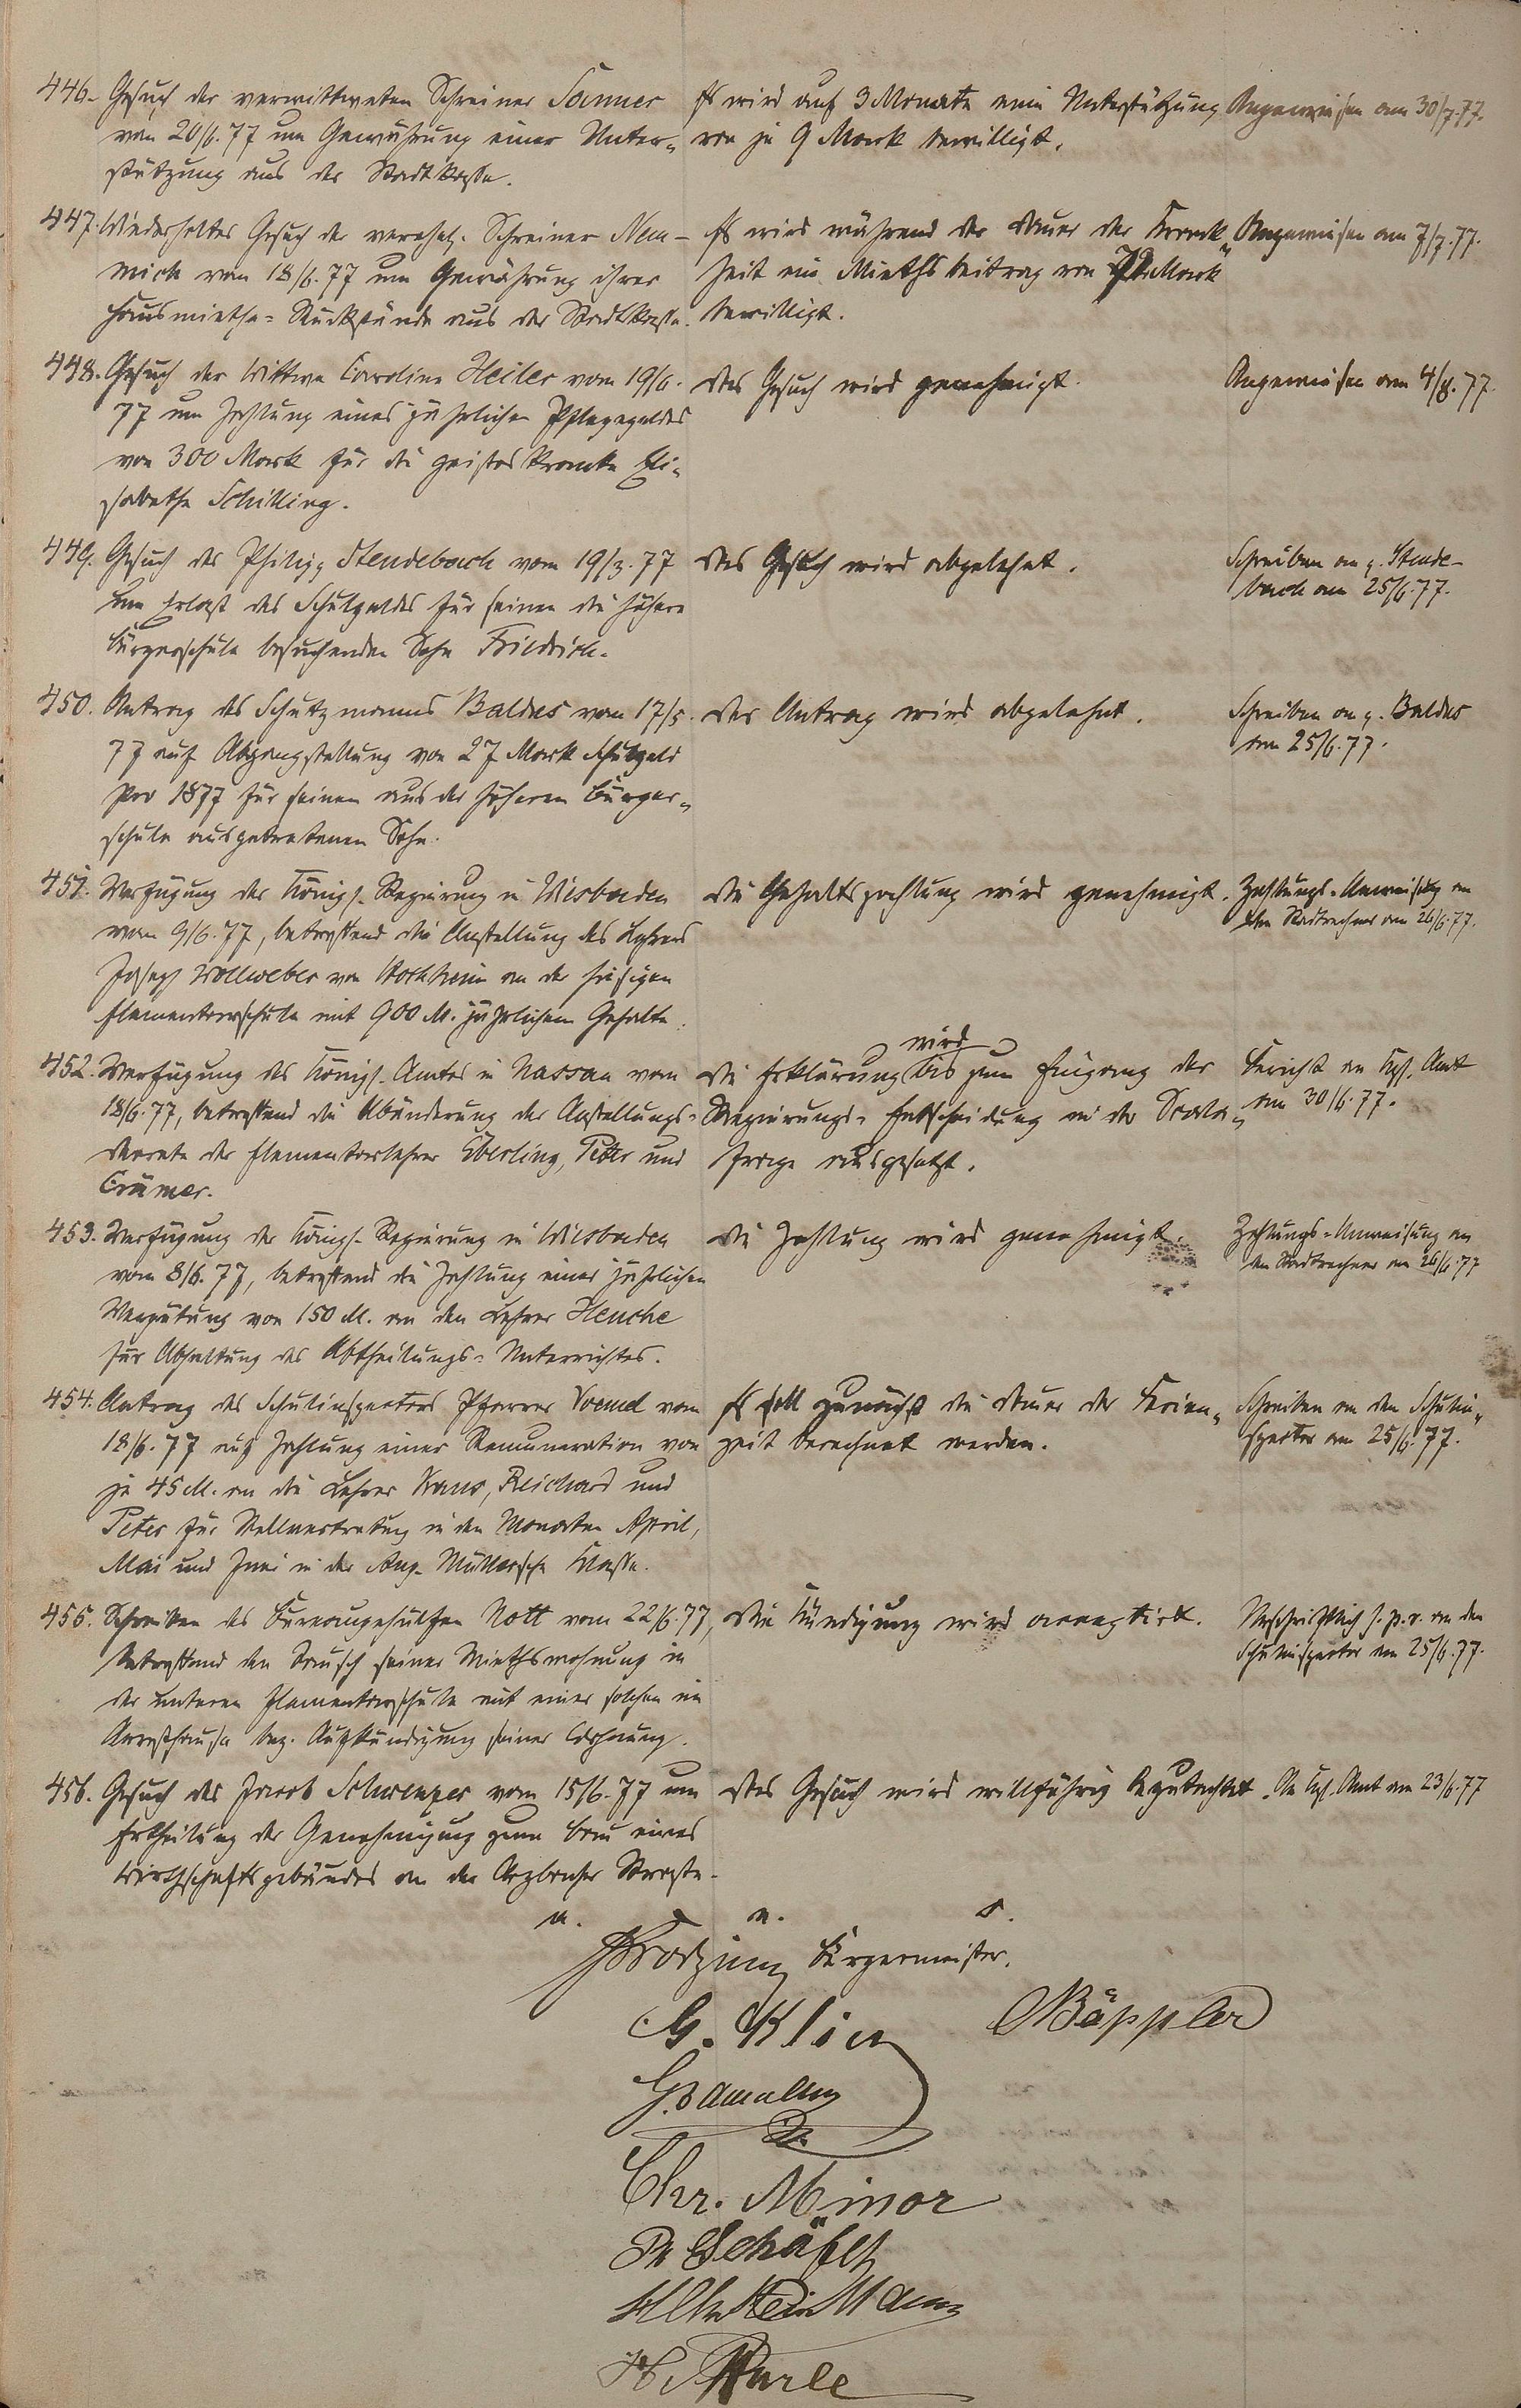 446. Gesuch der verwittweten Schreiner Sommer
vom 20/6. 77 um Gewährung einer Unter-
stützung aus der Stadtkasse.
Es wird auf 3 Monate eine Unterstützung
von je 9 Mark bewilligt.
Angewiesen am 30/7. 77.
447. Wiederholtes Gesuch der verehel. Schreiner Nem-
nich vom 18/6. 77 um Gewährung ihrer
Hausmiethe-Rückstände aus der Stadtkasse.
Es wird während der Dauer der Krank-
heit ein Miethsbeitrag von Mark
bewilligt.
Angewiesen am 7/7. 77.
448. Gesuch der Wittwe Caroline Heiler vom 19/6.
77 um Zahlung eines jährlichen Pflegegeldes
von 300 Mark für die geisteskranke Eli-
sabethe Schilling.
Das Gesuch wird genehmigt.
Angewiesen am 4/8. 77.
449. Gesuch des Philipp Stendebach vom 19/3. 77
um Erlaß des Schulgeldes für seinen die höhere
Bürgerschule besuchenden Sohn Friedrich.
Das Gesuch wird abgelehnt.
Schreiben an p. Stende-
bach am 25/6. 77.
450. Antrag des Schutzmanns Baldus vom 17/5.
77 auf Abgangstellung von 27 Mark Schulgeld
pro 1877 für seinen aus der höheren Bürger-
schule ausgetretenen Sohn.
Der Antrag wird abgelehnt.
Schreiben an p. Baldus
am 25/6. 77.
451. Verfügung der Königl. Regierung in Wiesbaden
vom 9/6. 77, betreffend die Anstellung des Lehrers
Joseph Wollweber von Hochheim an der hiesigen
Elementarschule mit 900 M. jährlichem Gehalte.
Die Gehaltszahlung wird genehmigt.
Zahlungs-Anweisung an
den Stadtrechner am 26/6. 77.
452. Verfügung des Königl. Amtes in Nassau vom
18/6. 77, betreffend die Abänderung der Anstellungs-
decrete der Elementarlehrer Eberling, Peter und
Crämer.
wird
Die Erklärung bis zum Eingang der
Regierungs-Entscheidung in der Scala-
frage ausgesetzt.
Bericht an Kgl. Amt
am 30/6. 77.
453. Verfügung der Königl. Regierung in Wiesbaden
vom 8/6. 77, betreffend die Zahlung einer jährlichen
Vergütung von 150 M. an den Lehrer Henche
für Abhaltung des Abtheilungs-Unterrichtes.
Die Zahlung wird genehmigt.
Zahlungs-Anweisung an
den Stadtrechner am 26/6. 77
454. Antrag des Schulinspectors Pfarrer Voemel vom
18/6. 77 auf Zahlung einer Remuneration von
je 45 M. an die Lehrer Kraus, Reichard und
Peter für Stellvertretung in den Monaten April,
Mai und Juni in der Aug. Müller'schen Klasse.
Es soll zunächst die Dauer der Ferien-
zeit berechnet werden.
Schreiben an den Schulin-
spector am 25/6. 77.
455. Schreiben des Bureaugehülfen Nott vom 22/6. 77,
betreffend den Tausch seiner Miethswohnung in
der unteren Elementarschule mit einer solchen im
Arresthause bez. Aufkündigung seiner Wohnung.
Die Kündigung wird acceptirt.
Urschriftlich s. p. r. an den
Schulinspector am 25/6. 77.
456. Gesuch des Jacob Schwenzer vom 15/6. 77 um
Ertheilung der Genehmigung zum Bau eines
Wirthschaftsgebäudes an der Arzbacher Strasse.
Das Gesuch wird willfährig begutachtet.
An Kgl. Amt am 23/6. 77
u. n. s.
Bürgermeister.
G. Klein
Bäppler
Chr. Minor
Ph Schäfer